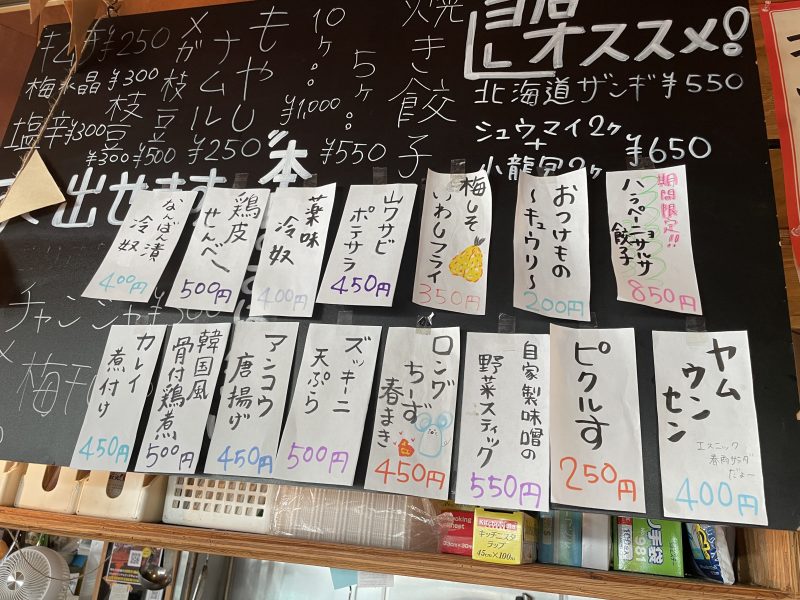 黒板オススメ!
北海道ザンギ ¥550
シュウマイ2ヶ
+
小龍包2ヶ
¥650
焼き餃子
5ヶ。¥550
10ヶ。¥1,000
もやし
ナムル
¥250
メガ
枝豆
¥500
枝豆
¥300
キムチ ¥250
梅水晶 ¥300
塩辛 ¥300
出せます
本
チャンジャ
梅
期間限定!!
ハラペーニョサルサ
餃子
850円
おつけもの
〜キュウリ〜
200円
梅しそ
いわしフライ
350円
山ワサビ
ポテサラ
450円
薬味
冷奴
400円
鶏皮
せんべー
500円
なんばん漬
冷奴
400円
ヤム
ウン
セン
エスニック
春雨サラダ
だよ〜
400円
ピクルす
250円
自家製味噌の
野菜スティック
550円
ロング
ちーず
春まき
450円
ズッキーニ
天ぷら
500円
アンコウ
唐揚げ
450円
韓国風
骨付鶏煮
500円
カレイ
煮付け
450円
キッチニスタ
ラップ
45cm×100m
手袋
981